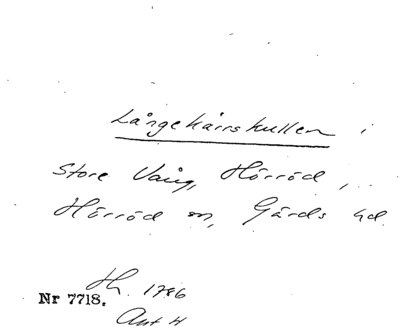 Långekärrskullen i
Store Vång, Hörröd,
Hörröd sn, Gärds hd.
Hh. 1786
Nr 7718.
Akt H